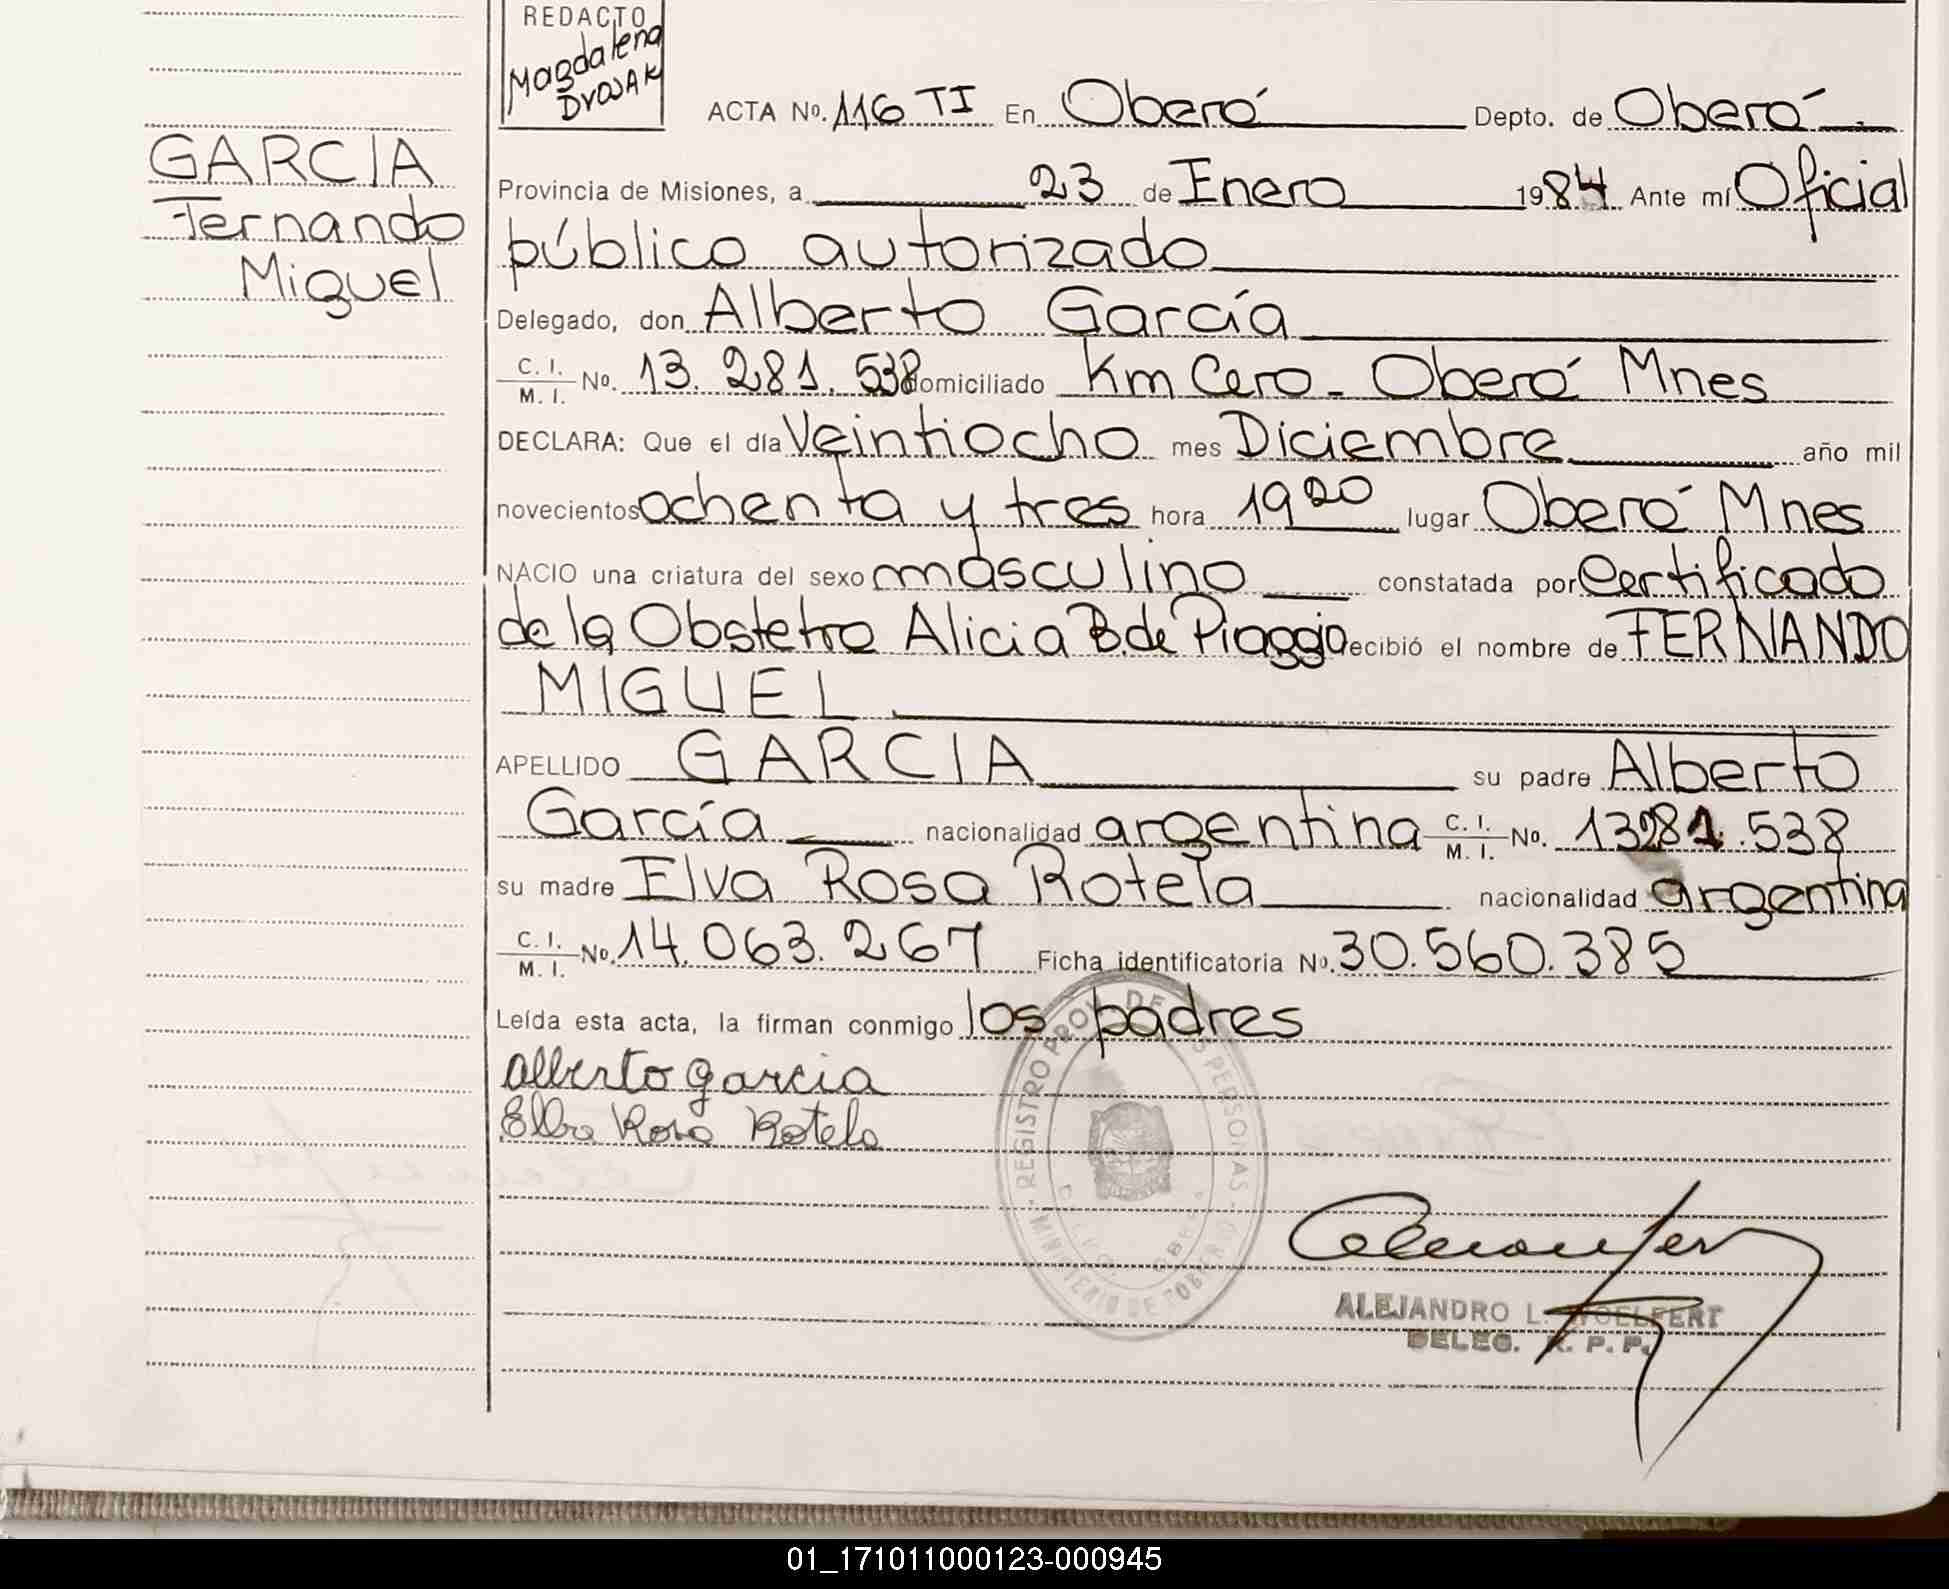 REDACTO
Magdalena
DvojAK
ACTA No. 116 TI En Oberá Depto. de Oberá
GARCIA
Fernando
Miguel
Provincia de Misiones, a 23 de Enero 1984 Ante mí Oficial
público autorizado
Delegado, don Alberto García
C. I.
M. I. No. 13.281.538 domiciliado Km Cero - Oberá Mnes
DECLARA: Que el día Veintiocho mes Diciembre año mil
novecientos ochenta y tres hora 19 20 lugar Oberá Mnes
NACIO una criatura del sexo masculino constatada por Certificado
de la Obstetra Alicia B. de Piaggio recibió el nombre de FERNANDO
MIGUEL
APELLIDO GARCIA su padre Alberto
García nacionalidad argentina C. I. M. I. No. 13281.538
su madre Elva Rosa Rotela nacionalidad argentina
C. I.
M. I. No. 14.063.267 Ficha identificatoria No. 30.560.385
Leída esta acta, la firman conmigo los padres
alberto garcia
Elba Rosa Rotela
REGISTRO PROV. DE LAS PERSONAS
MINISTERIO DE GOBIERNO
ALEJANDRO L. WOELFERT
DELEG. R. P. P.
01_171011000123-000945